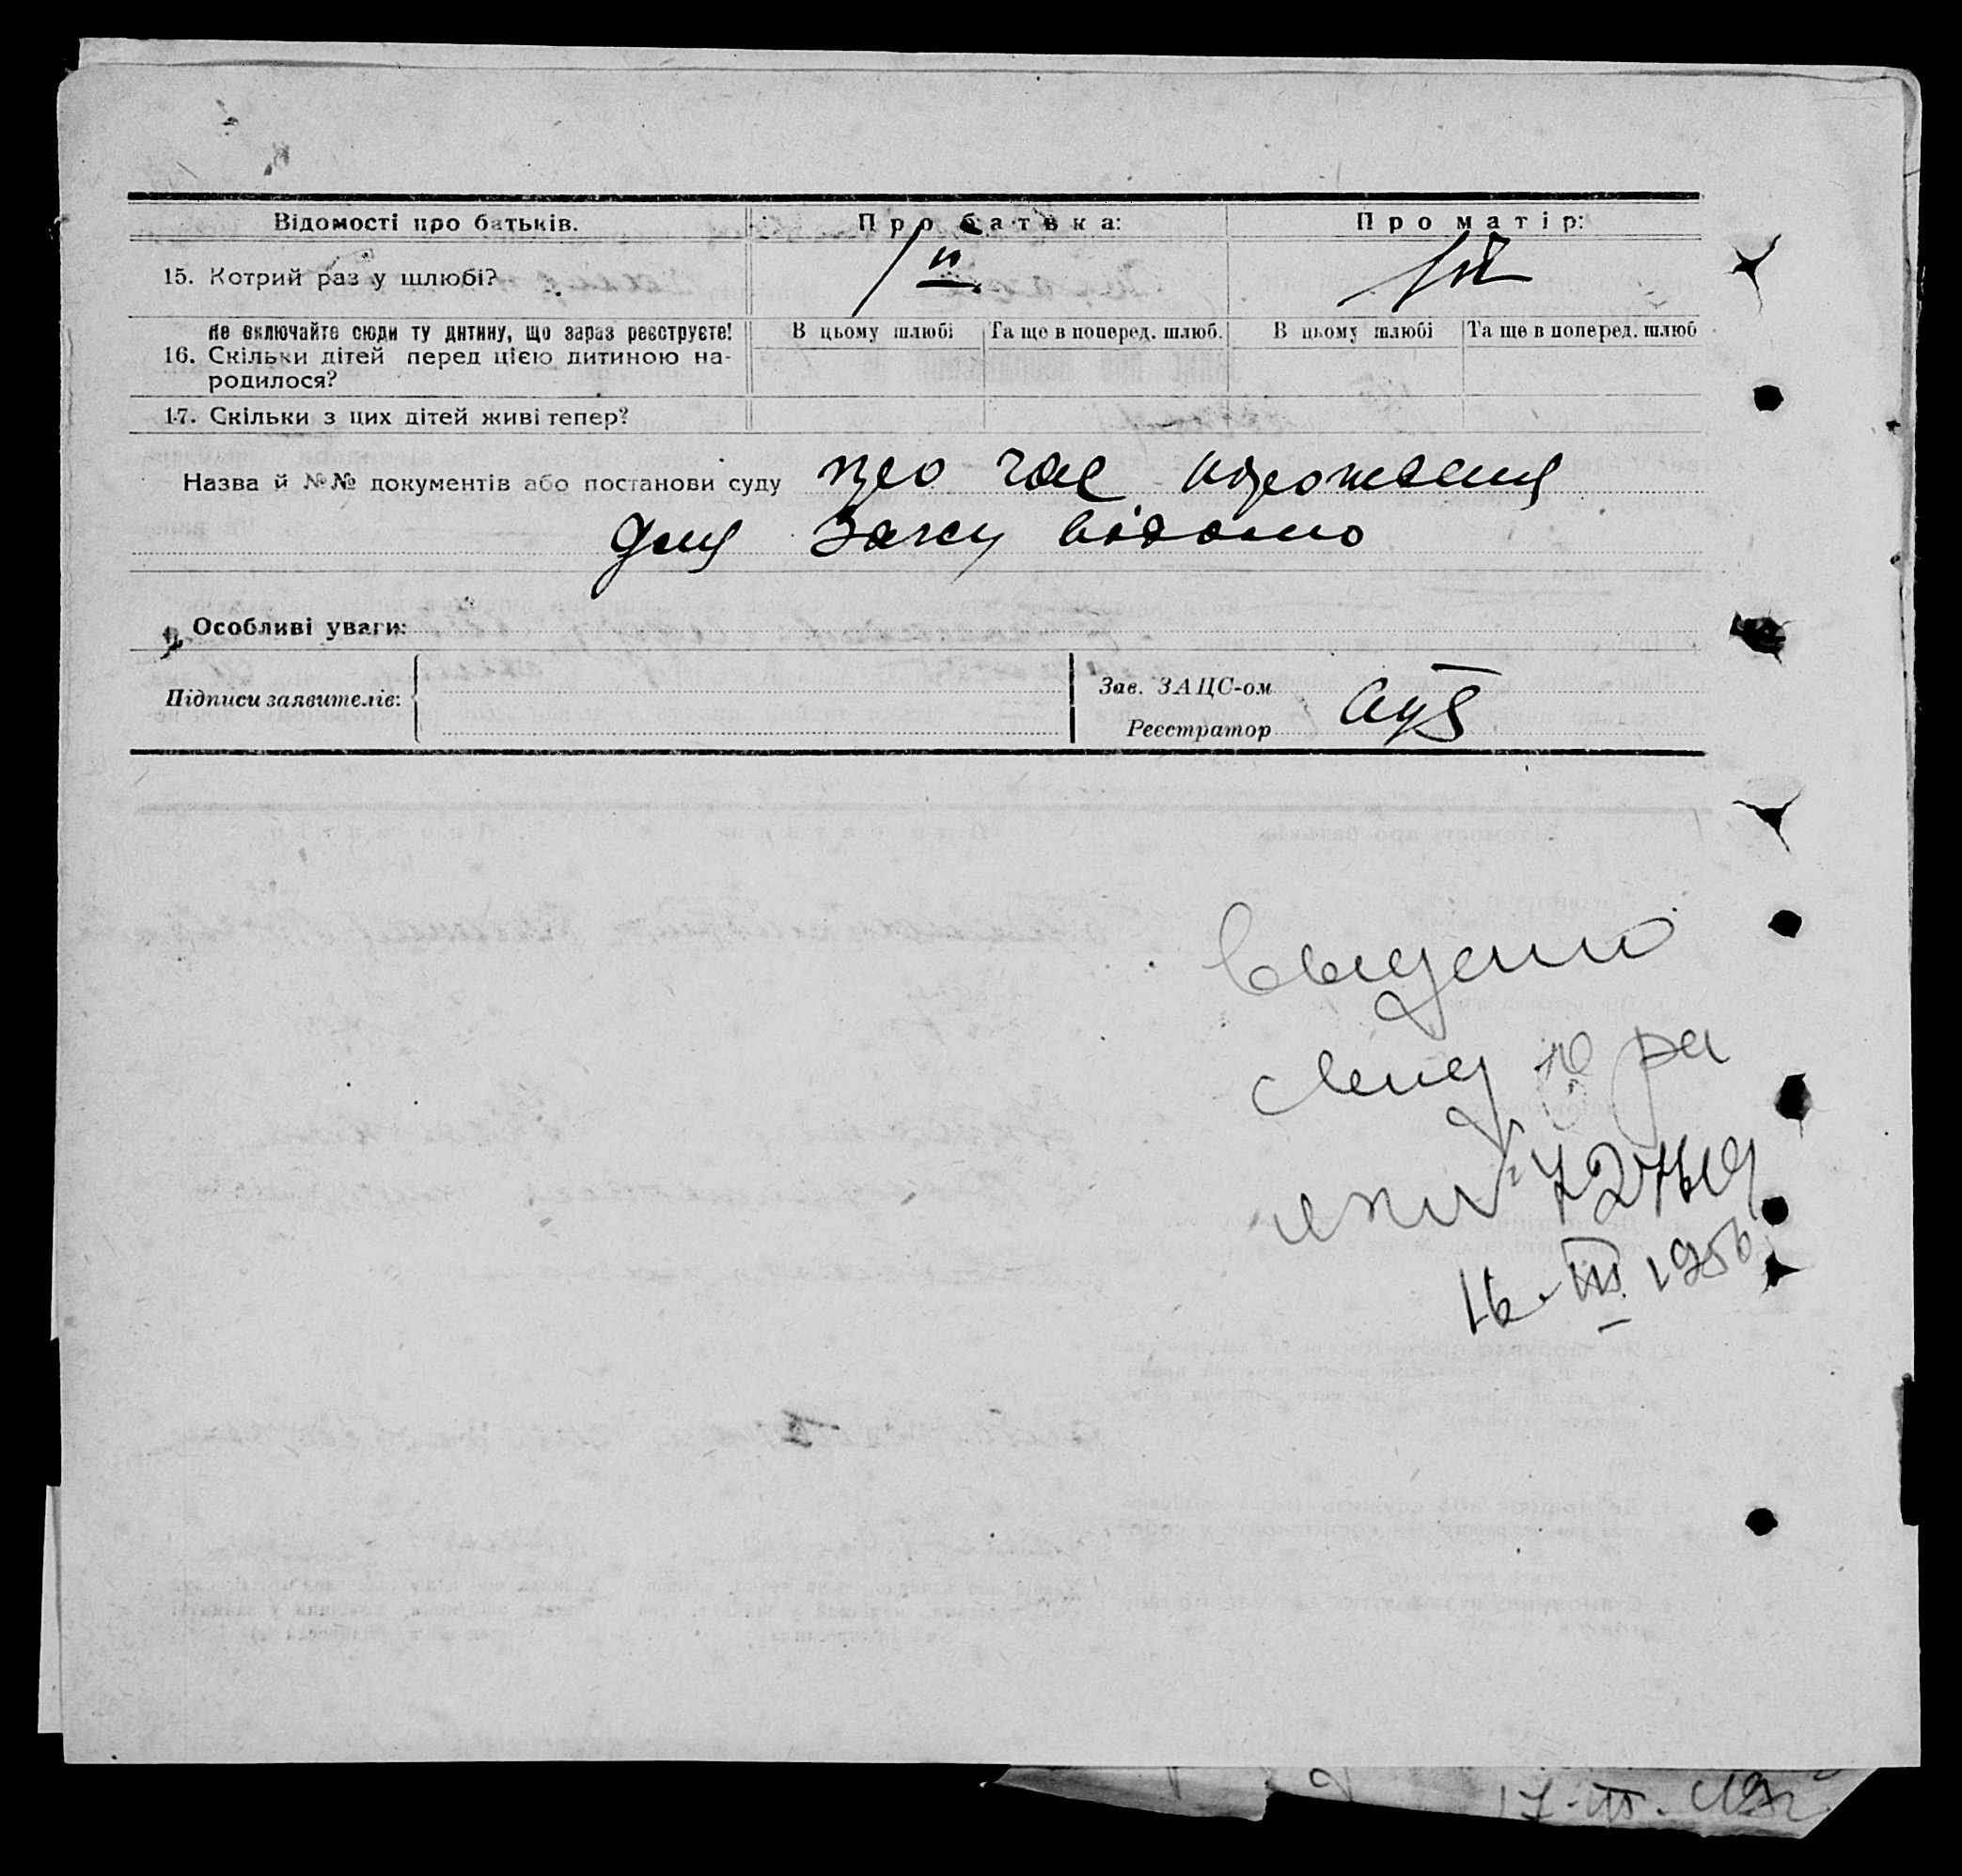 Відомості про батьків. Про батька: Про матір:
15. Котрий раз у шлюбі? Iй Iй
Не включайте сюди ту дитину, що зараз реєструєте! В цьому шлюбі Та ще в поперед. шлюб. В цьому шлюбі Та ще в поперед. шлюб
16. Скільки дітей перед цією дитиною на-
родилося?
17. Скільки з цих дітей живі тепер?
Назва й №№ документів або постанови суду про час
Загсу відомо
Особливі уваги:
Підписи заявителів: Зав. ЗАЦС-ом
Реєстратор
Выдано
16. III. 1956
17. III.